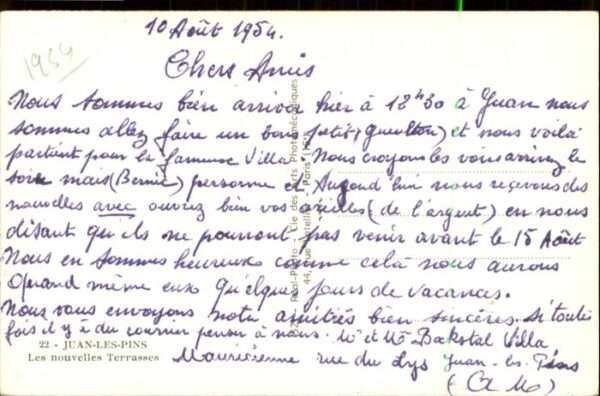 10 Août 1954.
1954
Chers Amis
Nous sommes bien arrivé hier à 12h30 à Juan nous
sommes allez faire un bon petit (gueulton) et nous voilà
partient pour la fameuse Villa. Nous croyons les vous arrivez le
soir mais (Bernic) personne et Aujourd'hui nous reçevons des
nouvelles avec ouvrez bien vos oreilles (de l'argent) en nous
disant qu'ils ne pourront pas venir avant le 15 Août
Nous en sommes heureux comme celà nous aurons
Quand même eux quelque jours de vacances.
Nous vous envoyons notre amitiés bien sincères. si toutes
fois il y a du courrier penser à nous. Mr et Me Villa
22 - JUAN-LES-PINS
Les nouvelles Terrasses
Mauricienne rue du Lys Juan-les-Pins
(A M)